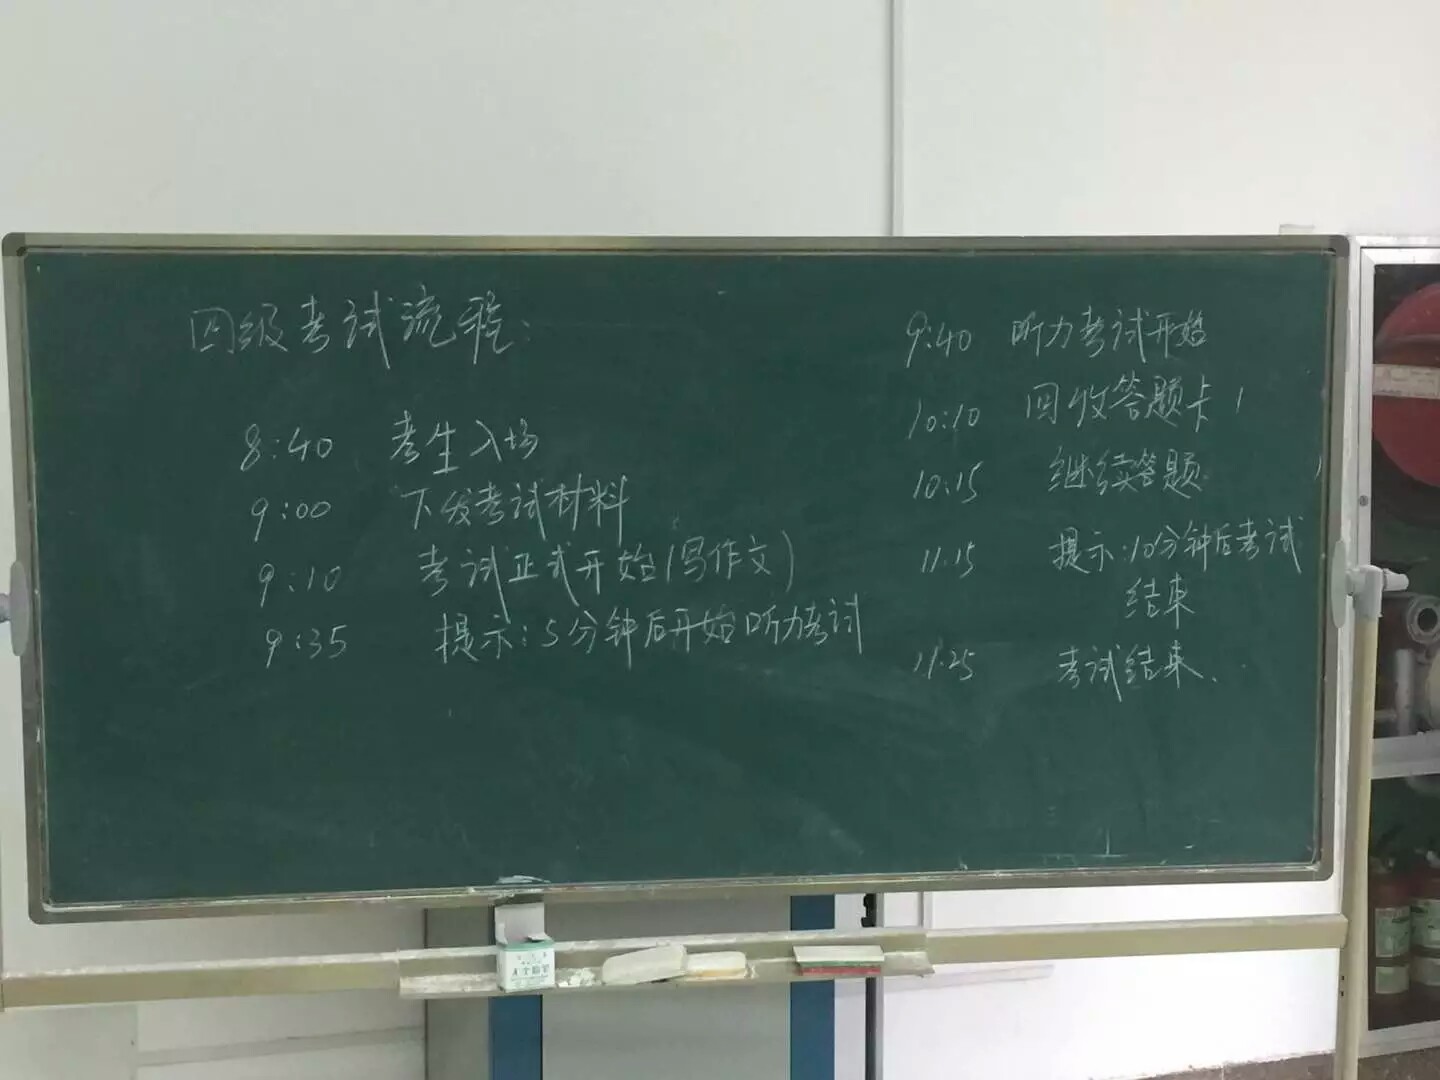 四级考试流程:
8:40 考生入场
9:00 下发考试材料
9:10 考试正式开始(写作文)
9:35 提示:5分钟后开始听力考试
9:40 听力考试开始
10:10 回收答题卡1
10:15 继续答题
11.15 提示:10分钟后考试
结束
11.25 考试结束.